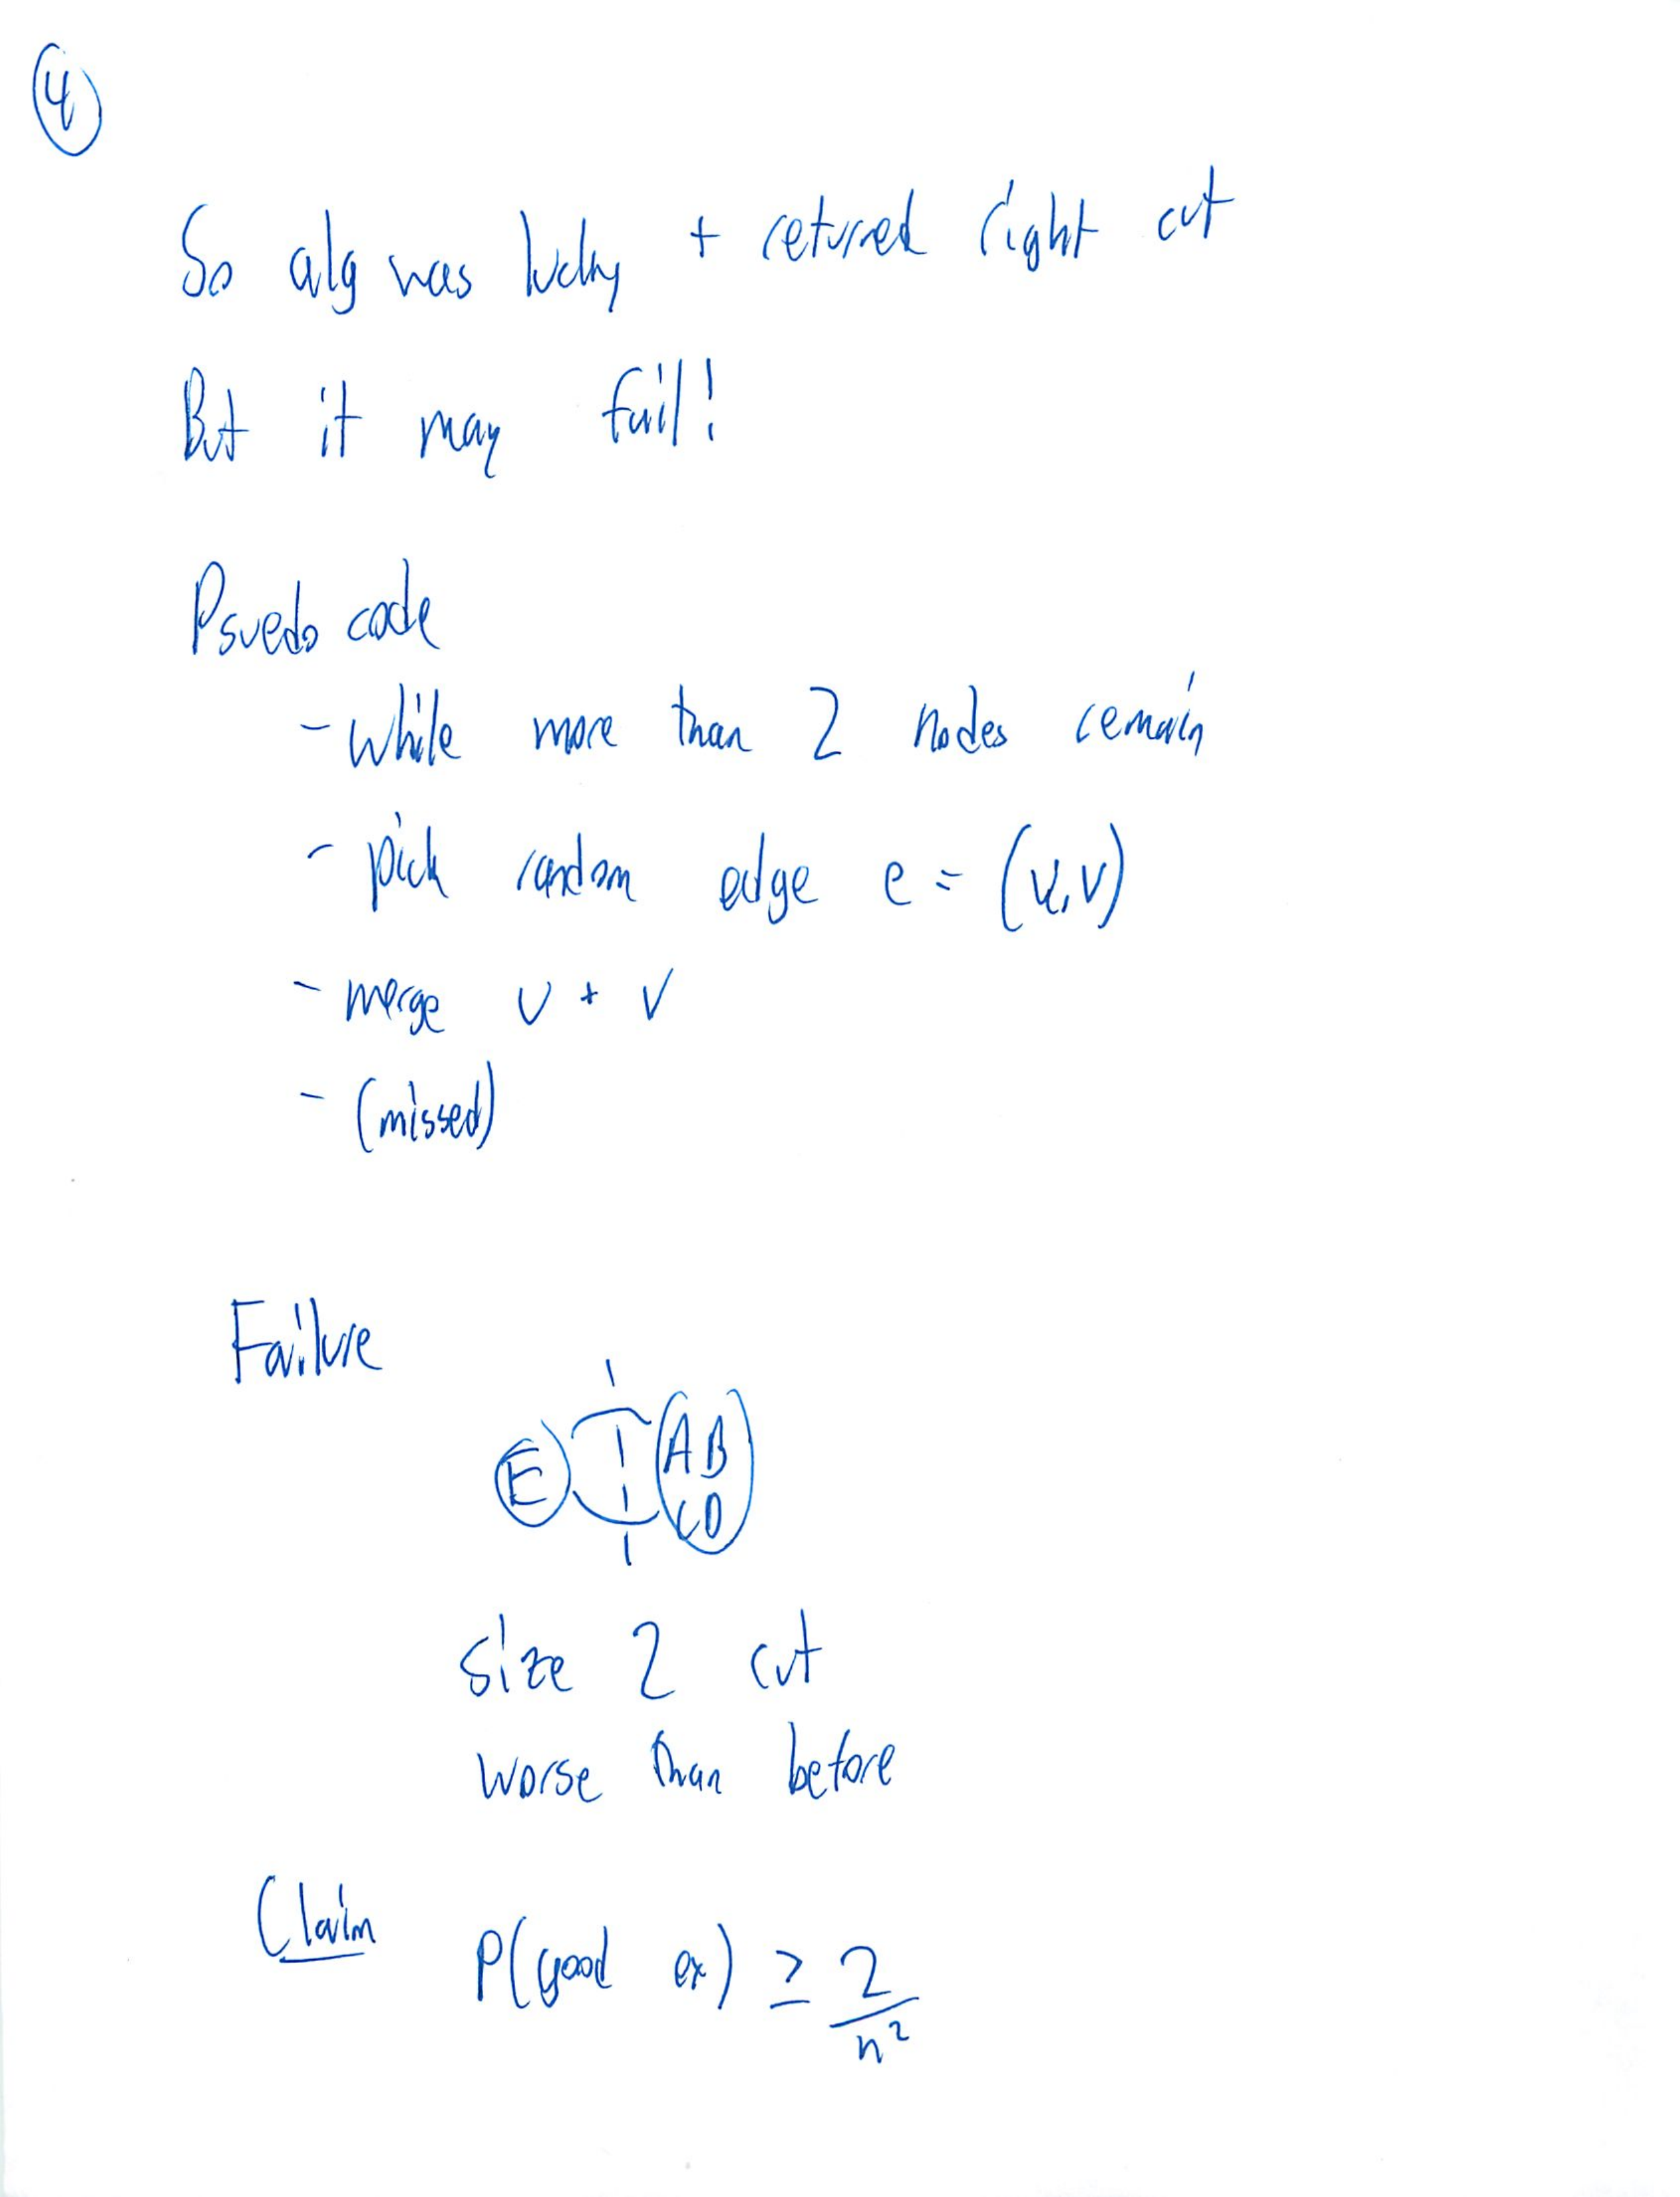 4
So alg was lucky + returned right cut
But it may fail!
Psuedo code
- While more than 2 nodes remain
- pick random edge e = (u,v)
- merge u + v
- (missed)
Failure
E AB
CD
size 2 cut
worse than before
Claim P(good ex) ≥ 2/n²